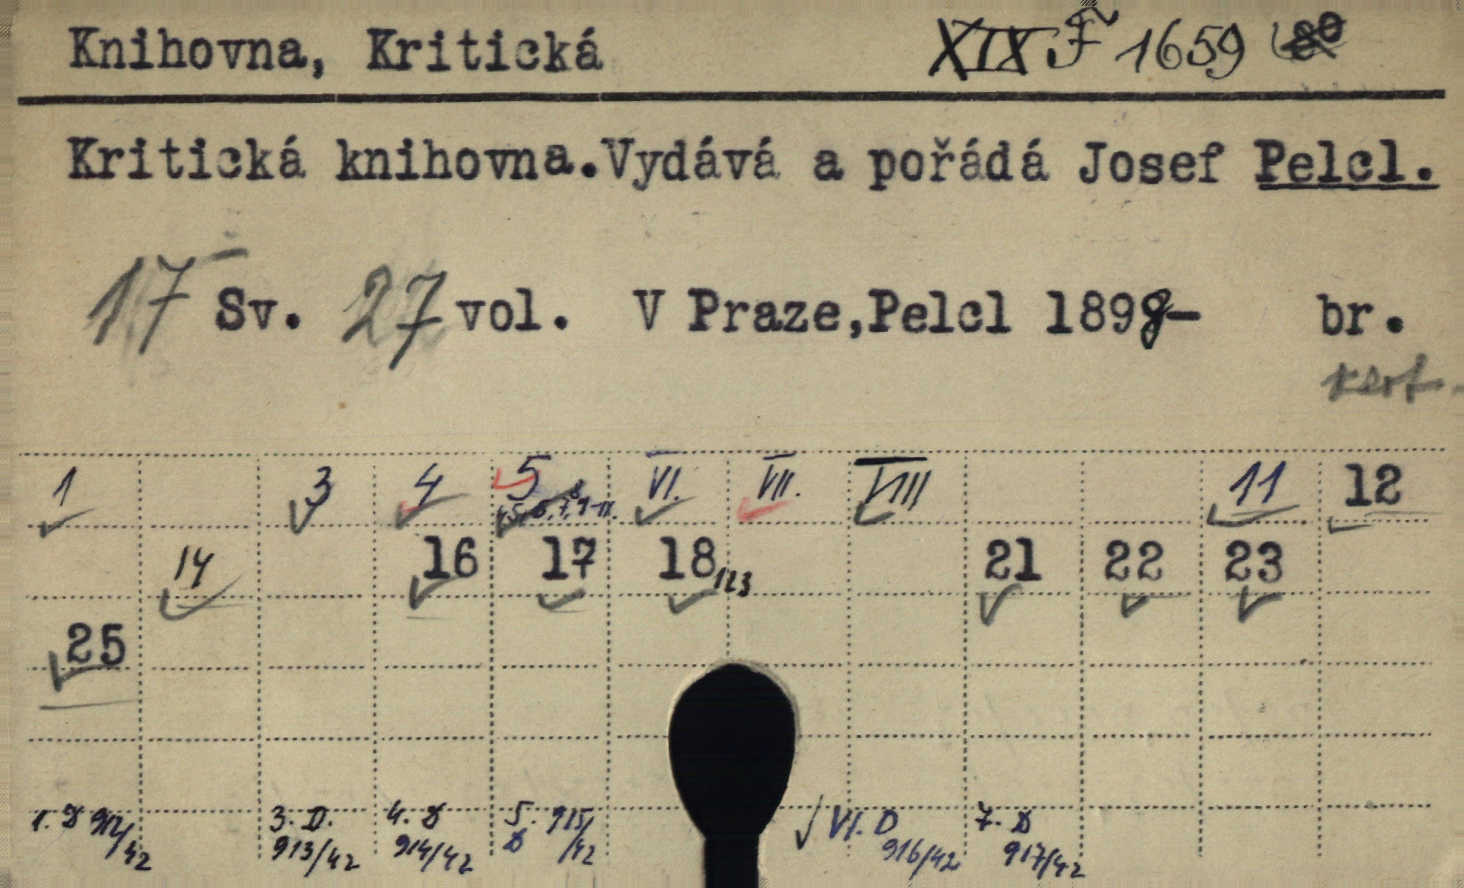 Knihovna, Kritická XIX F 1659
Kritická knihovna.Vydává a pořádá Josef Pelcl.
17 Sv. 27 vol. V Praze,Pelcl 1898- br.
1 3 4 5 VI. VII. VIII 11 12
14 16 17 18 123 21 22 23
25
1. D 912/42 3. D. 913/42 4. D 914/42 5. D 915/42 VI. D 916/42 7. D 917/42